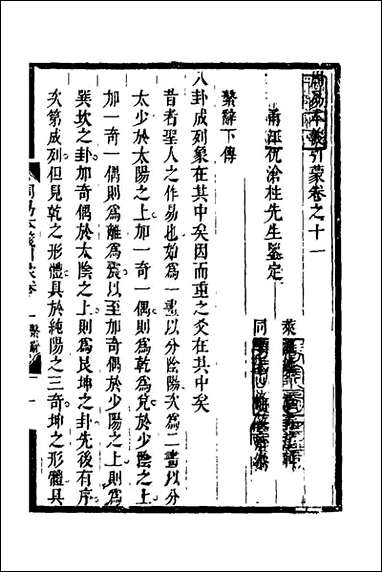 周易本義引蒙卷之十一
甬江祝滄柱先生鑒定
萊
同
繫辭下傳
八卦成列象在其中矣因而重之爻在其中矣
昔者聖人之作易也始爲一畫以分陰陽次爲二畫以分
太少於太陽之上加一奇一偶則爲乾爲兌於少陰之上
加一奇一偶則爲離爲震以至加奇偶於少陽之上則爲
巽坎之卦加奇偶於太陰之上則爲艮坤之卦先後有序
次第成列但見乾之形體具於純陽之三奇坤之形體具
周易本義引蒙卷 繫辭 一